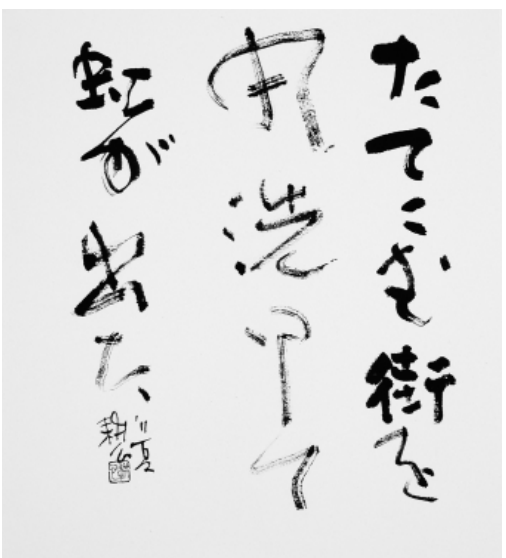 たてこむ街を
雨洗 て
虹が出た、
'11夏